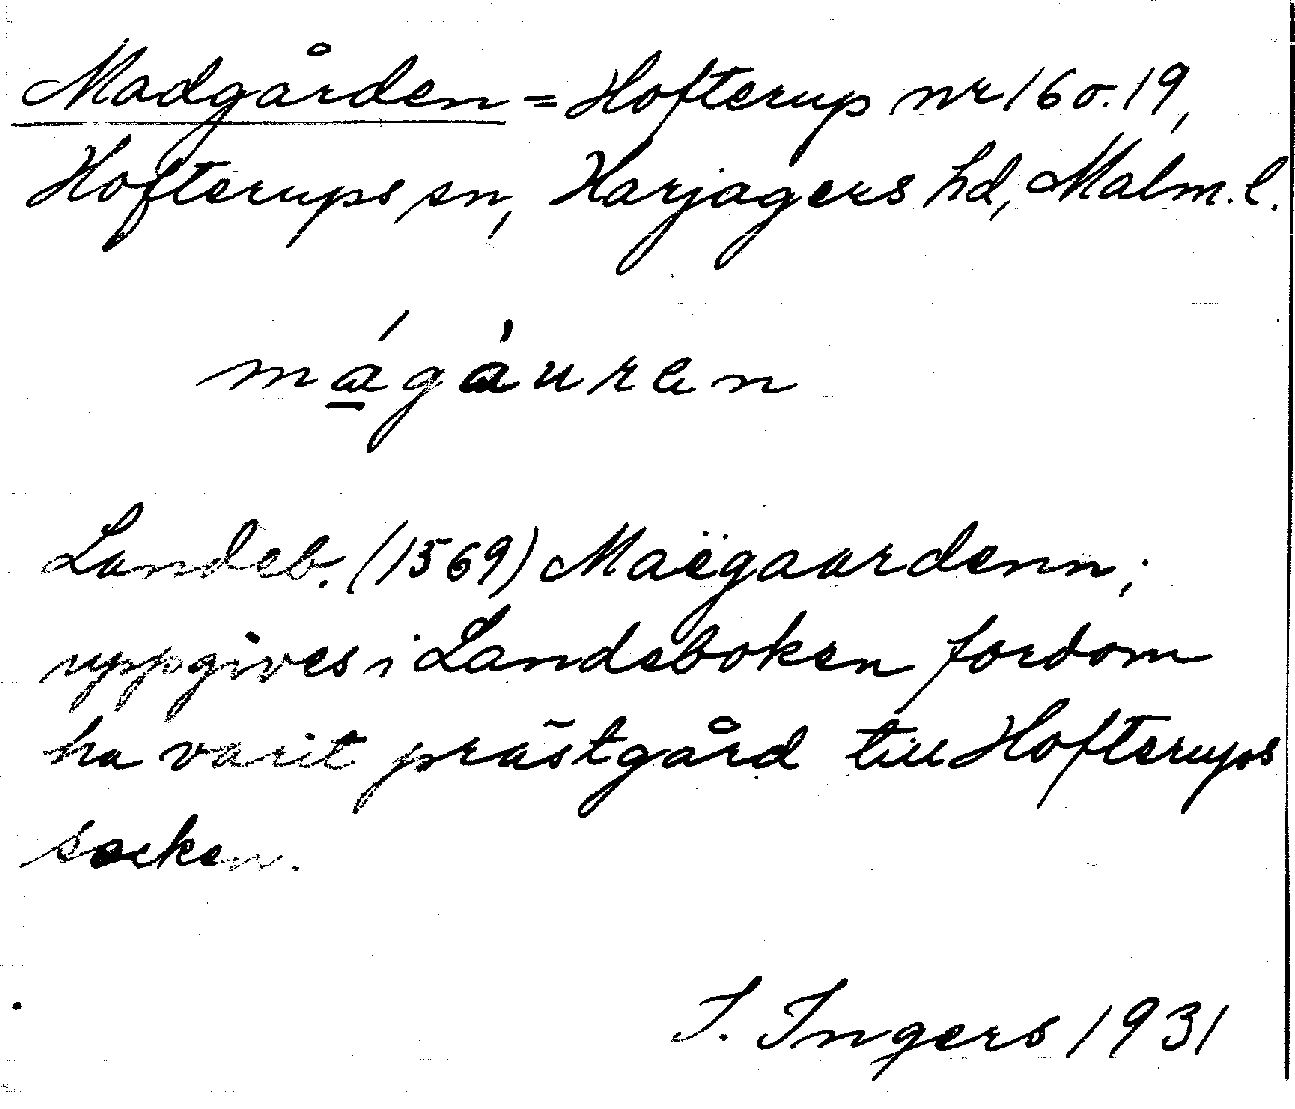 Madgården = Hofterup nr 16 o. 19,
Hofterups sn, Harjagers hd, Malm. l.
má̱gàuren
Landeb. (1569) Maëgaardenn;
uppgives i Landeboken fordom
ha varit prästgård till Hofterups
socken.
I. Ingers 1931